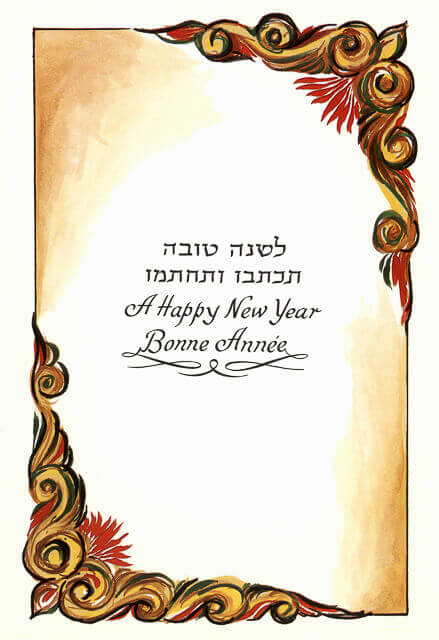 לשנה טובה
תכתבו ותחתמו
A Happy New Year
Bonne Année